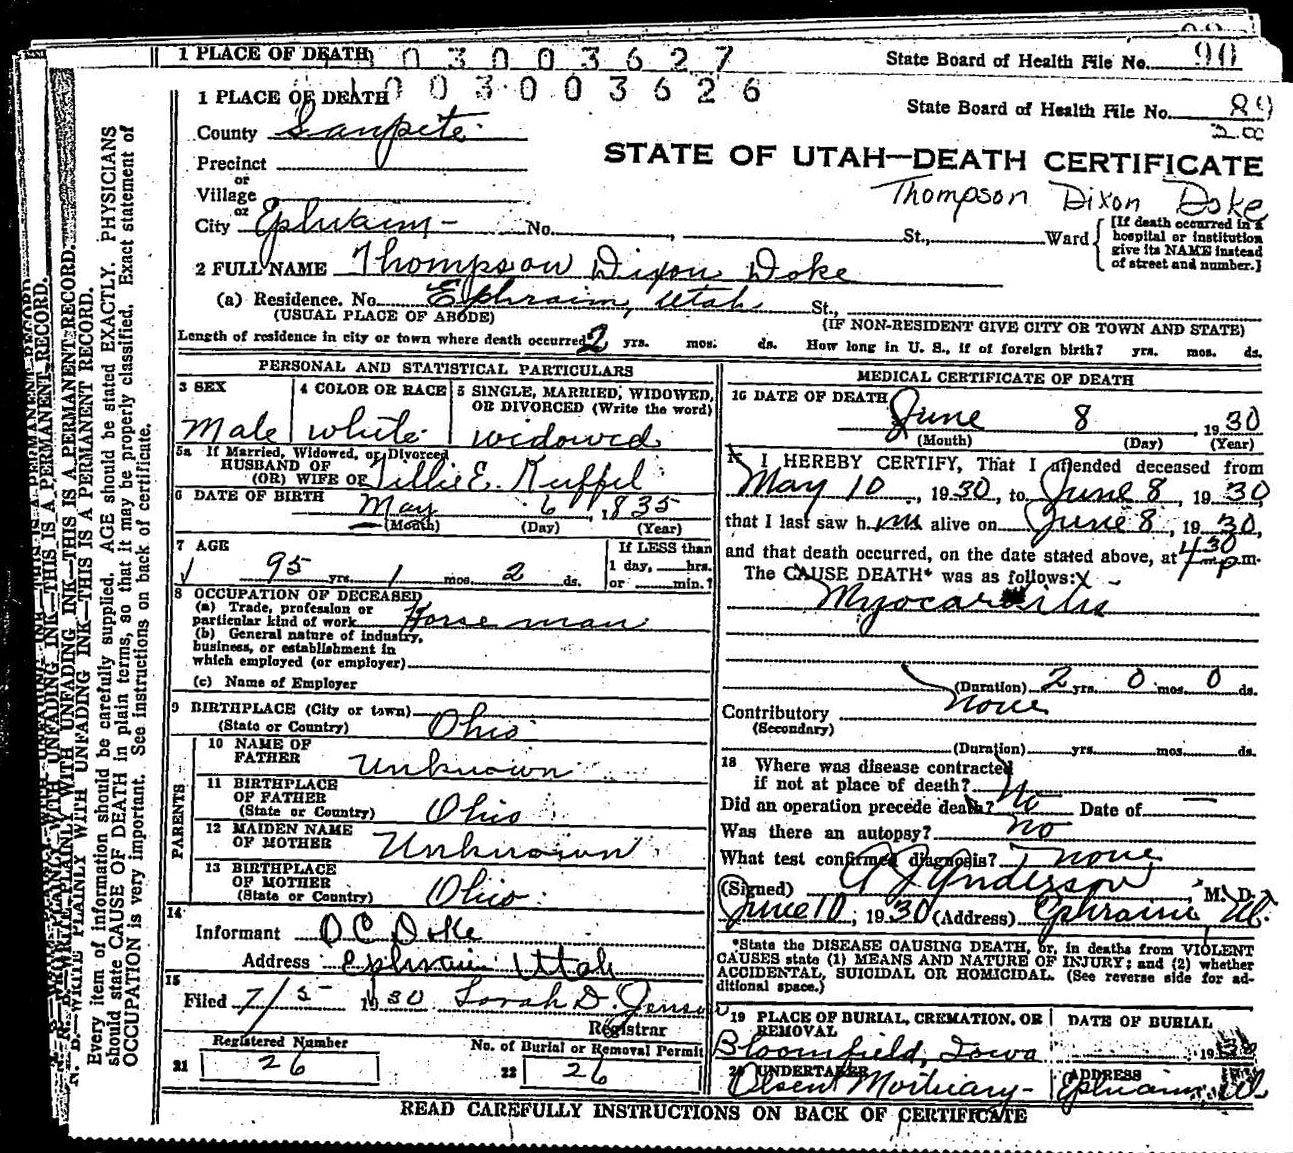 1 PLACE OF DEATH 0 3 0 0 3 6 2 7 State Board of Health File No. 90
0 0 3 0 0 3 6 2 6
1 PLACE OF DEATH State Board of Health File No. 89
County Sanpete
Precinct
STATE OF UTAH—DEATH CERTIFICATE
or
Village
Thompson Dixon Doke
or
City Ephraim - No. , St., Ward {[If death occurred in a
hospital or institution
give its NAME instead
of street and number.]
2 FULL NAME Thompson Dixon Doke
(a) Residence. No. Ephraim, Utah St.,
(USUAL PLACE OF ABODE) (IF NON-RESIDENT GIVE CITY OR TOWN AND STATE)
Length of residence in city or town where death occurred 2 yrs. mos. ds. How long in U. S., if of foreign birth? yrs. mos. ds.
PERSONAL AND STATISTICAL PARTICULARS
3 SEX 4 COLOR OR RACE 5 SINGLE, MARRIED, WIDOWED,
OR DIVORCED (Write the word)
Male white widowed
5a If Married, Widowed, or Divorced
HUSBAND OF
(OR) WIFE OF Tillie E. Ruffel
6 DATE OF BIRTH May 6, 1835
(Month) (Day) (Year)
7 AGE If LESS than
1 day, hrs.
95 yrs. 1 mos. 2 ds. or min.?
8 OCCUPATION OF DECEASED
(a) Trade, profession or
particular kind of work Horseman
(b) General nature of industry,
business, or establishment in
which employed (or employer)
(c) Name of Employer
9 BIRTHPLACE (City or town)
(State or Country) Ohio
PARENTS
10 NAME OF
FATHER Unknown
11 BIRTHPLACE
OF FATHER
(State or Country) Ohio
12 MAIDEN NAME
OF MOTHER Unknown
13 BIRTHPLACE
OF MOTHER
(State or Country) Ohio
14
Informant O C Doke
Address Ephraim Utah
15
Filed 7/5- 1930 Sarah D. Jensen
Registrar
Registered Number No. of Burial or Removal Permit
21 26 22 26
MEDICAL CERTIFICATE OF DEATH
16 DATE OF DEATH
June 8, 1930
(Month) (Day) (Year)
17 I HEREBY CERTIFY, That I attended deceased from
May 10, 1930, to June 8, 1930,
that I last saw him alive on June 8, 1930,
and that death occurred, on the date stated above, at 4 30 p m.
The CAUSE DEATH* was as follows:
Myocarditis
(Duration) 2 yrs. 0 mos. 0 ds.
Contributory None
(Secondary)
(Duration) yrs. mos. ds.
18 Where was disease contracted
if not at place of death?
Did an operation precede death? No Date of —
Was there an autopsy? No
What test confirmed diagnosis? none
(Signed) A J Anderson, M. D.
June 10, 1930 (Address) Ephraim Ut.
*State the DISEASE CAUSING DEATH, or, in deaths from VIOLENT
CAUSES state (1) MEANS AND NATURE OF INJURY; and (2) whether
ACCIDENTAL, SUICIDAL OR HOMICIDAL. (See reverse side for ad-
ditional space.)
19 PLACE OF BURIAL, CREMATION, OR DATE OF BURIAL
REMOVAL
Bloomfield, Iowa 19
20 UNDERTAKER ADDRESS
Olsen Mortuary- Ephraim, Ut
READ CAREFULLY INSTRUCTIONS ON BACK OF CERTIFICATE
N. B.—WRITE PLAINLY WITH UNFADING INK—THIS IS A PERMANENT RECORD.
Every item of information should be carefully supplied. AGE should be stated EXACTLY. PHYSICIANS
should state CAUSE OF DEATH in plain terms, so that it may be properly classified. Exact statement of
OCCUPATION is very important. See instructions on back of certificate.